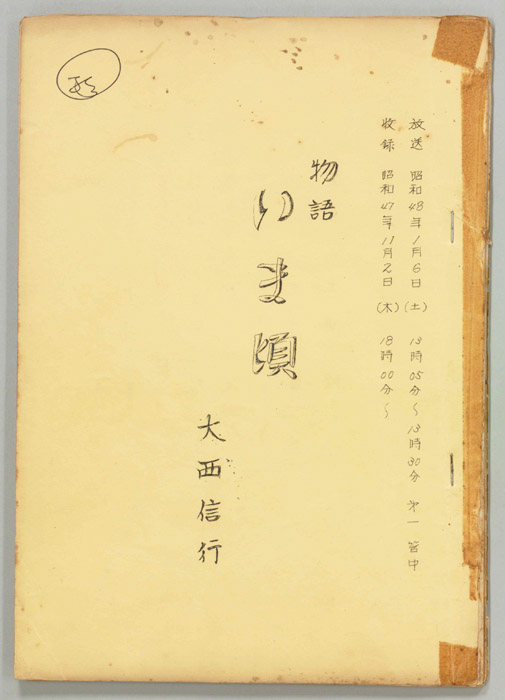 放送 昭和48年1月6日(土) 13時05分~13時30分 第一 管中
收録 昭和47年11月2日(木) 18時00分~
物語
いま頃
大西信行